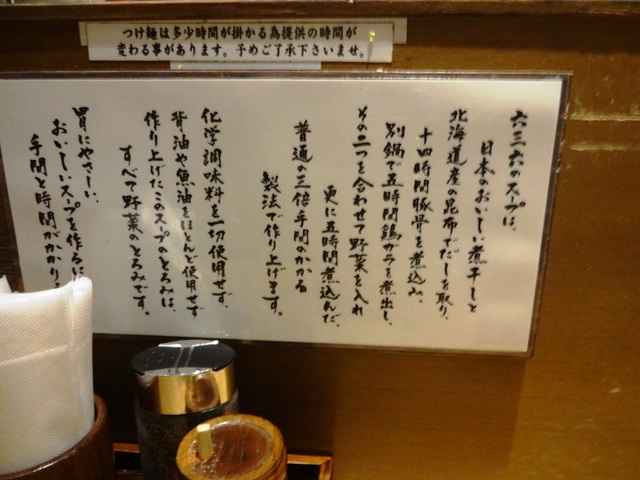 つけ麺は多少時間が掛かる為提供の時間が
変わる事があります。予めご了承下さいませ。
六三六のスープは、
日本のおいしい煮干しと
北海道産の昆布でだしを取り、
十四時間豚骨を煮込み、
別鍋で五時間鶏ガラを煮出し、
その二つを合わせて野菜を入れ
更に五時間煮込んだ、
普通の三倍手間のかかる
製法で作り上げます。
化学調味料を一切使用せず、
背油や魚油をほとんど使用せず
作り上げたこのスープのとろみは、
すべて野菜のとろみです。
胃にやさしい、
おいしいスープを作るに
手間と時間がかかり